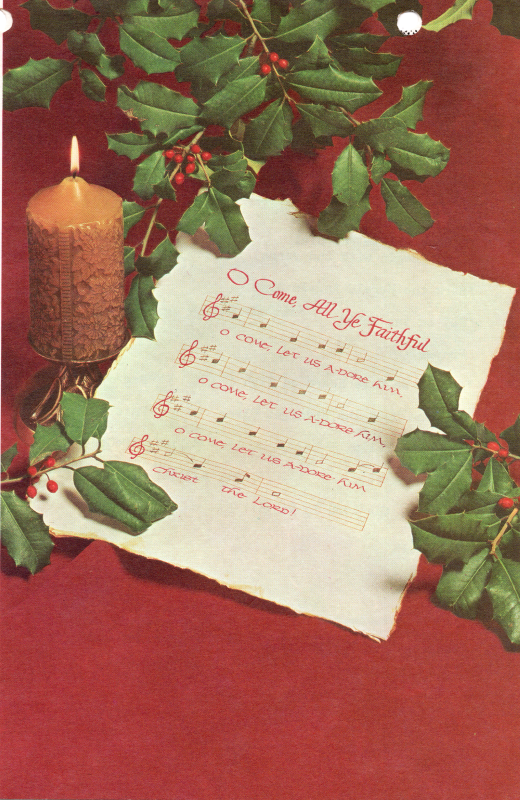 O Come, All Ye Faithful
O COME, LET US A-DORE HIM,
O COME, LET US A-DORE HIM,
O COME, LET US A-DORE HIM
CHRIST THE LORD!